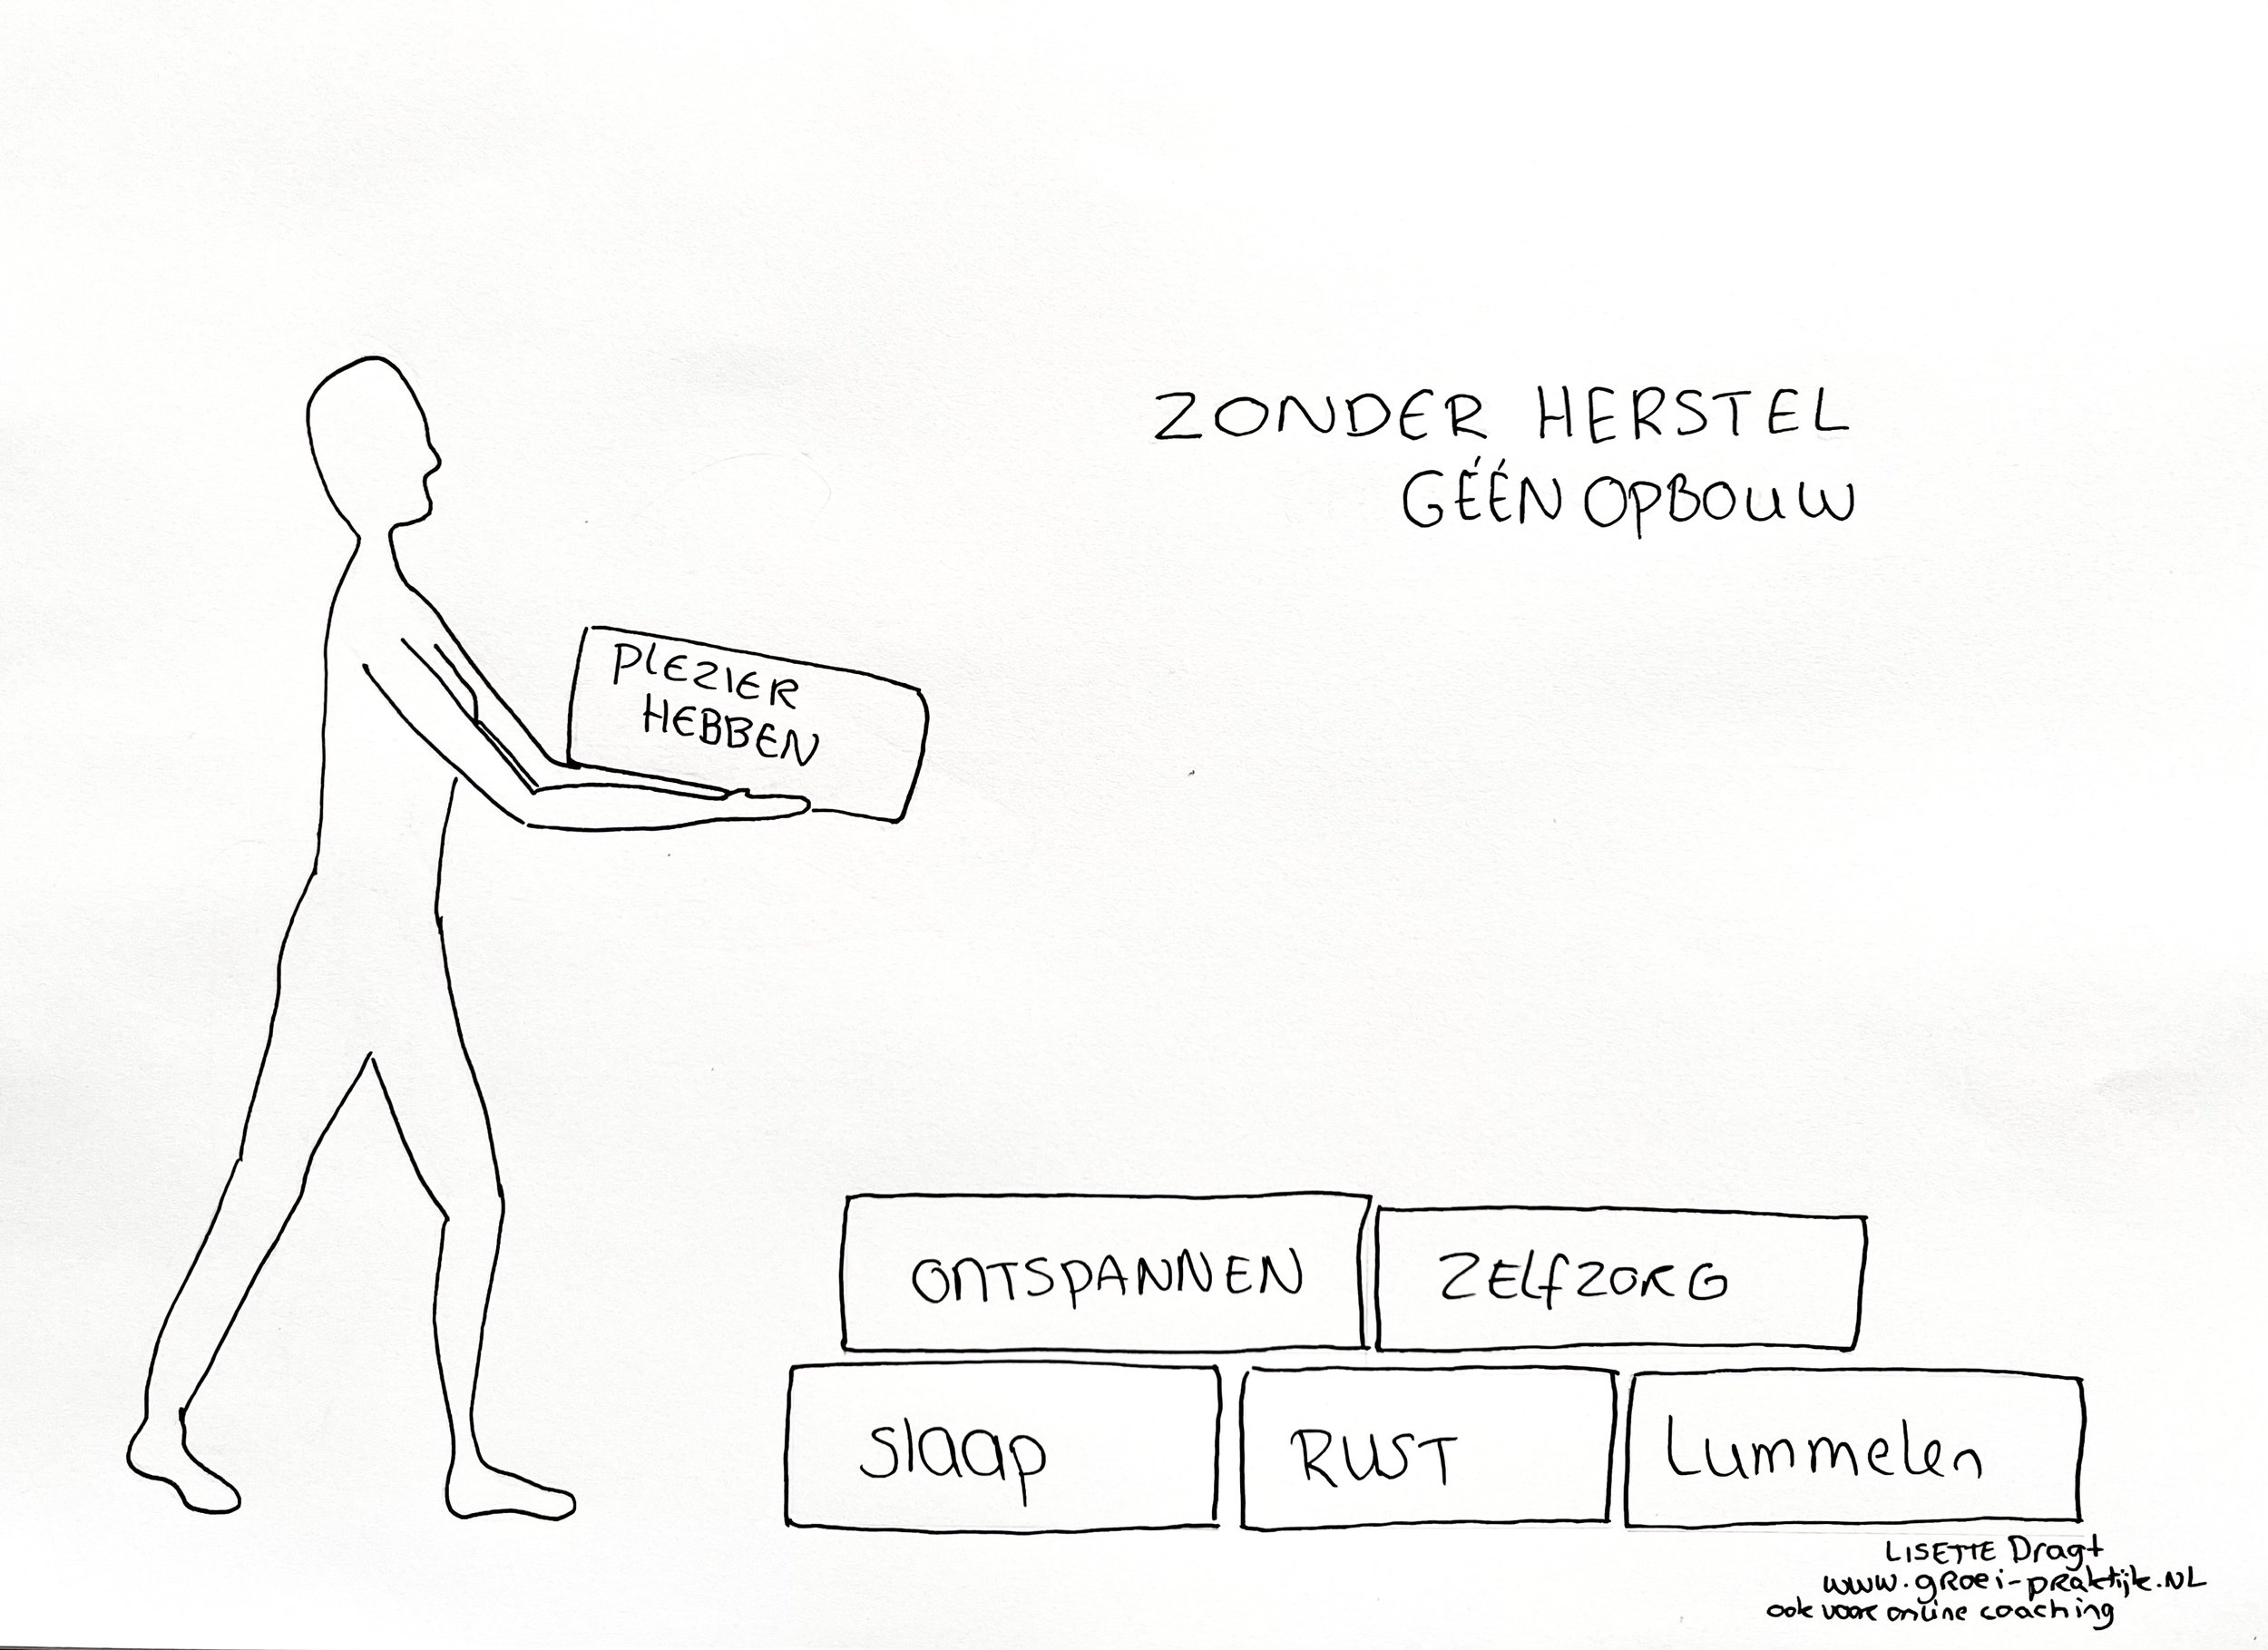 ZONDER HERSTEL
GÉÉN OPBOUW
PLEZIER
HEBBEN
ONTSPANNEN
ZELFZORG
Slaap
RUST
Lummelen
LISETTE Dragt
www.gRoei-pRaktijk.NL
ook voor online coaching